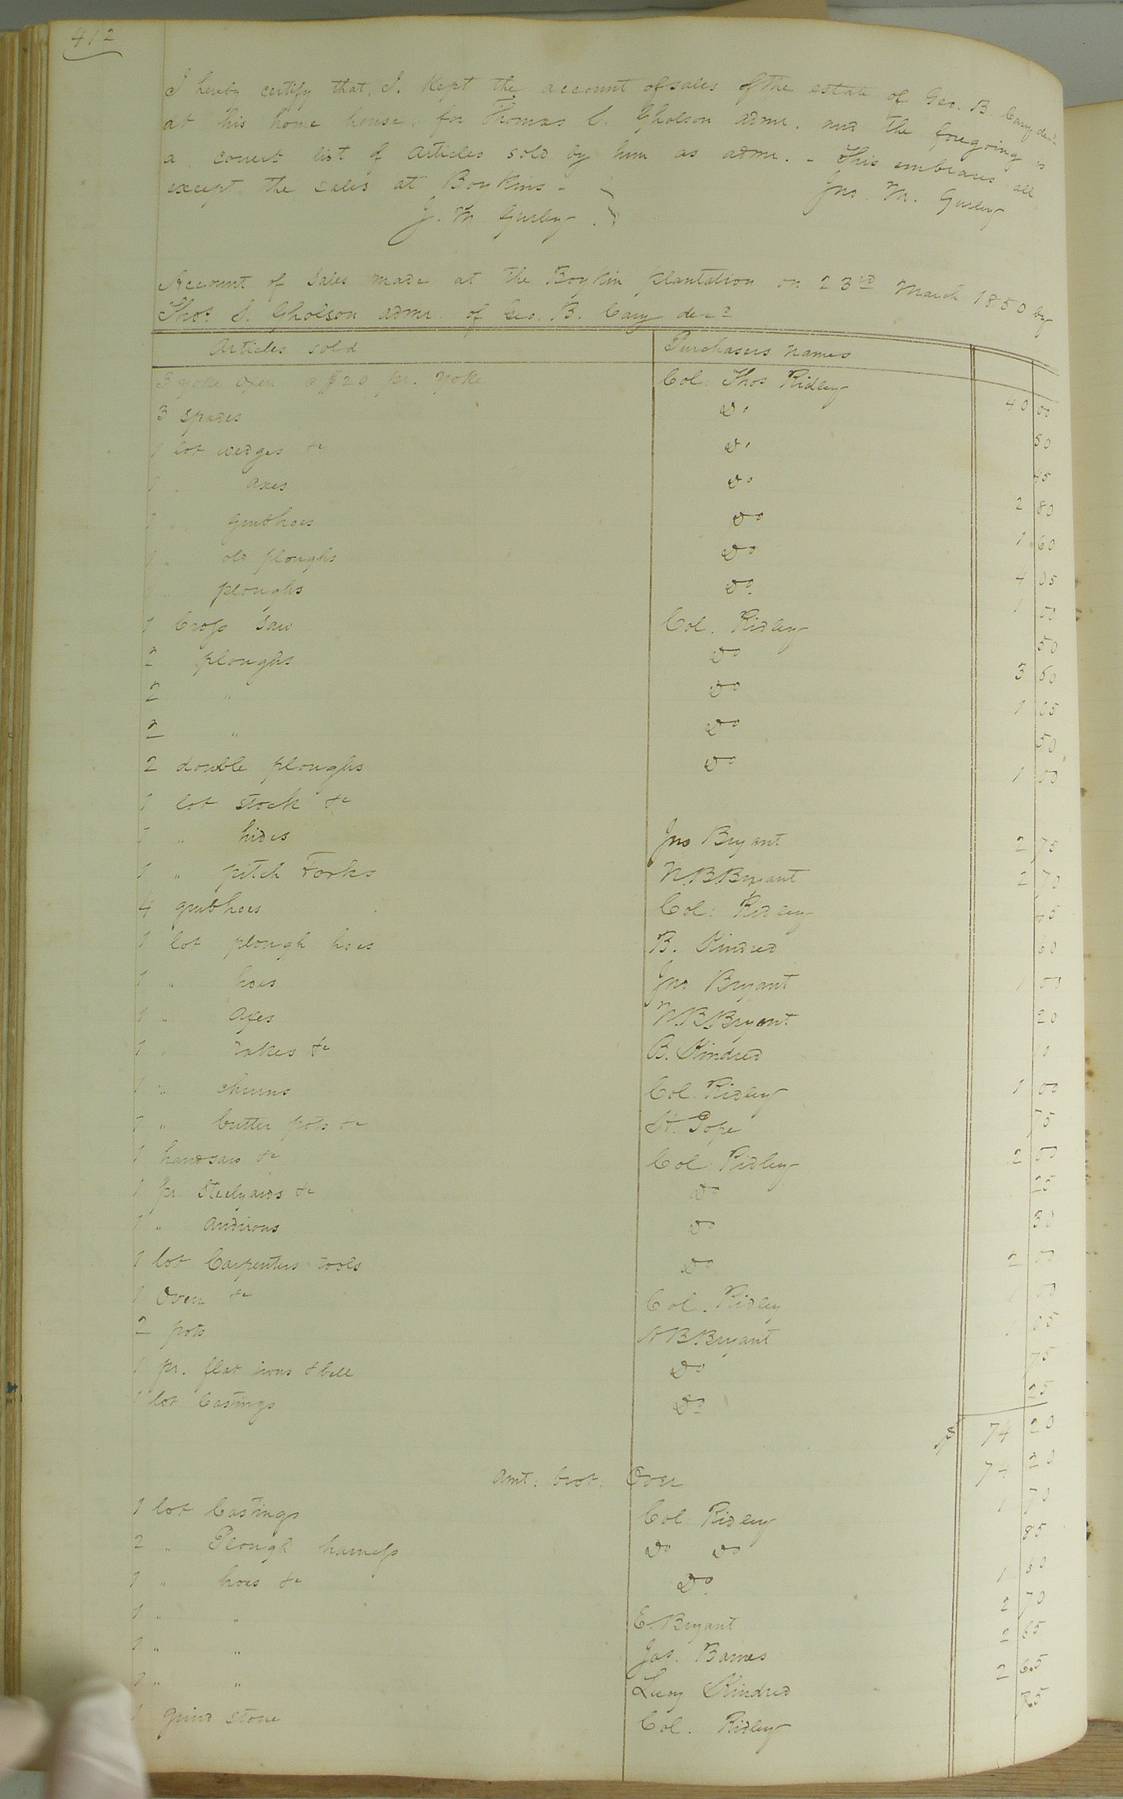 412
I hereby certify that, I. Kept the account of sales of the estate of Geo. B. Cary decd
at his home house, for Thomas S. Gholson admr. and the foregoing is
a correct list of articles sold by him as admr. - This embraces all
except the sales at Boykins - Jno. M. Gurley
J. M. Gurley
Account of sales made at the Boykin plantation on 23rd March 1850 by
Thos S. Gholson admr. of Geo. B. Cary decd
Articles sold Purchasers names
yoke Oxen @ $20 pr. yoke Col. Thos Ridley 40 00
3 spades Do 50
1 lot wedges &c Do 45
1 " axes Do 2 80
1 " grubhoes Do 1 60
1 " old ploughs Do 4 05
1 " ploughs Do 1 00
1 Cross Saw Col. Ridley 50
2 ploughs Do 3 50
2 " Do 1 05
2 " Do 50
2 double ploughs Do 1 00
1 lot stock &c
1 " hides Jno Bryant 2 75
1 " pitch Forks N. B. Bryant 2 70
4 grubhoes Col. Ridley 45
1 lot plough hoes B. Kindred 60
1 " hoes Jno Bryant 1 00
1 " Axes N. B. Bryant 20
1 " rakes &c B. Kindred
1 " churns Col. Ridley 1 00
1 " butter pots &c Pope 75
1 handsaw &c Col Ridley 2 00
1 pr. Steelyards &c Do 25
1 " Andirons Do 30
1 lot Carpenters tools Do 2 00
1 Oven &c Col. Ridley 00
2 pots N B. Bryant 05
1 pr. flat irons & bell Do 75
1 lot Castings Do 25
$ 74 20
Amt. brot. Over 74 20
1 lot Castings Col Ridley 1 70
2 " Plough harness Do Do 85
1 " hoes &c Do 1 50
1 " " E. Bryant 2 70
1 " " Jas. Barnes 2 65
1 " " Kindred 2 65
1 Grind stone Col. Ridley 75